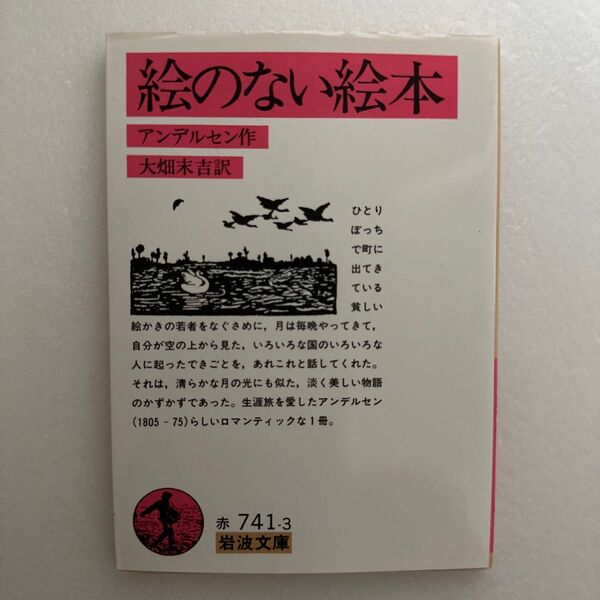 絵のない絵本
アンデルセン作
大畑末吉訳
ひとり
ぼっち
で町に
出てき
ている
貧しい
絵かきの若者をなぐさめに，月は毎晩やってきて，
自分が空の上から見た，いろいろな国のいろいろな
人に起ったできごとを，あれこれと話してくれた。
それは，清らかな月の光にも似た，淡く美しい物語
のかずかずであった。生涯旅を愛したアンデルセン
(1805－75)らしいロマンティックな1冊。
赤 741-3
岩波文庫